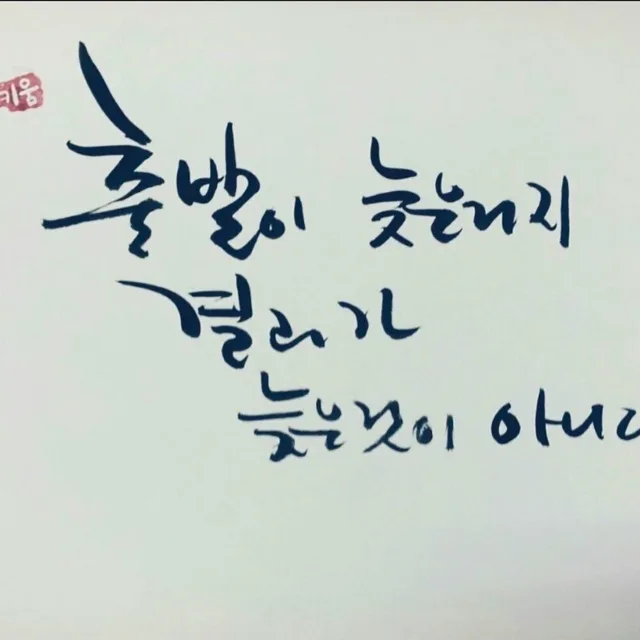 키움
출발이 늦은거지
결과가
늦은것이 아니다